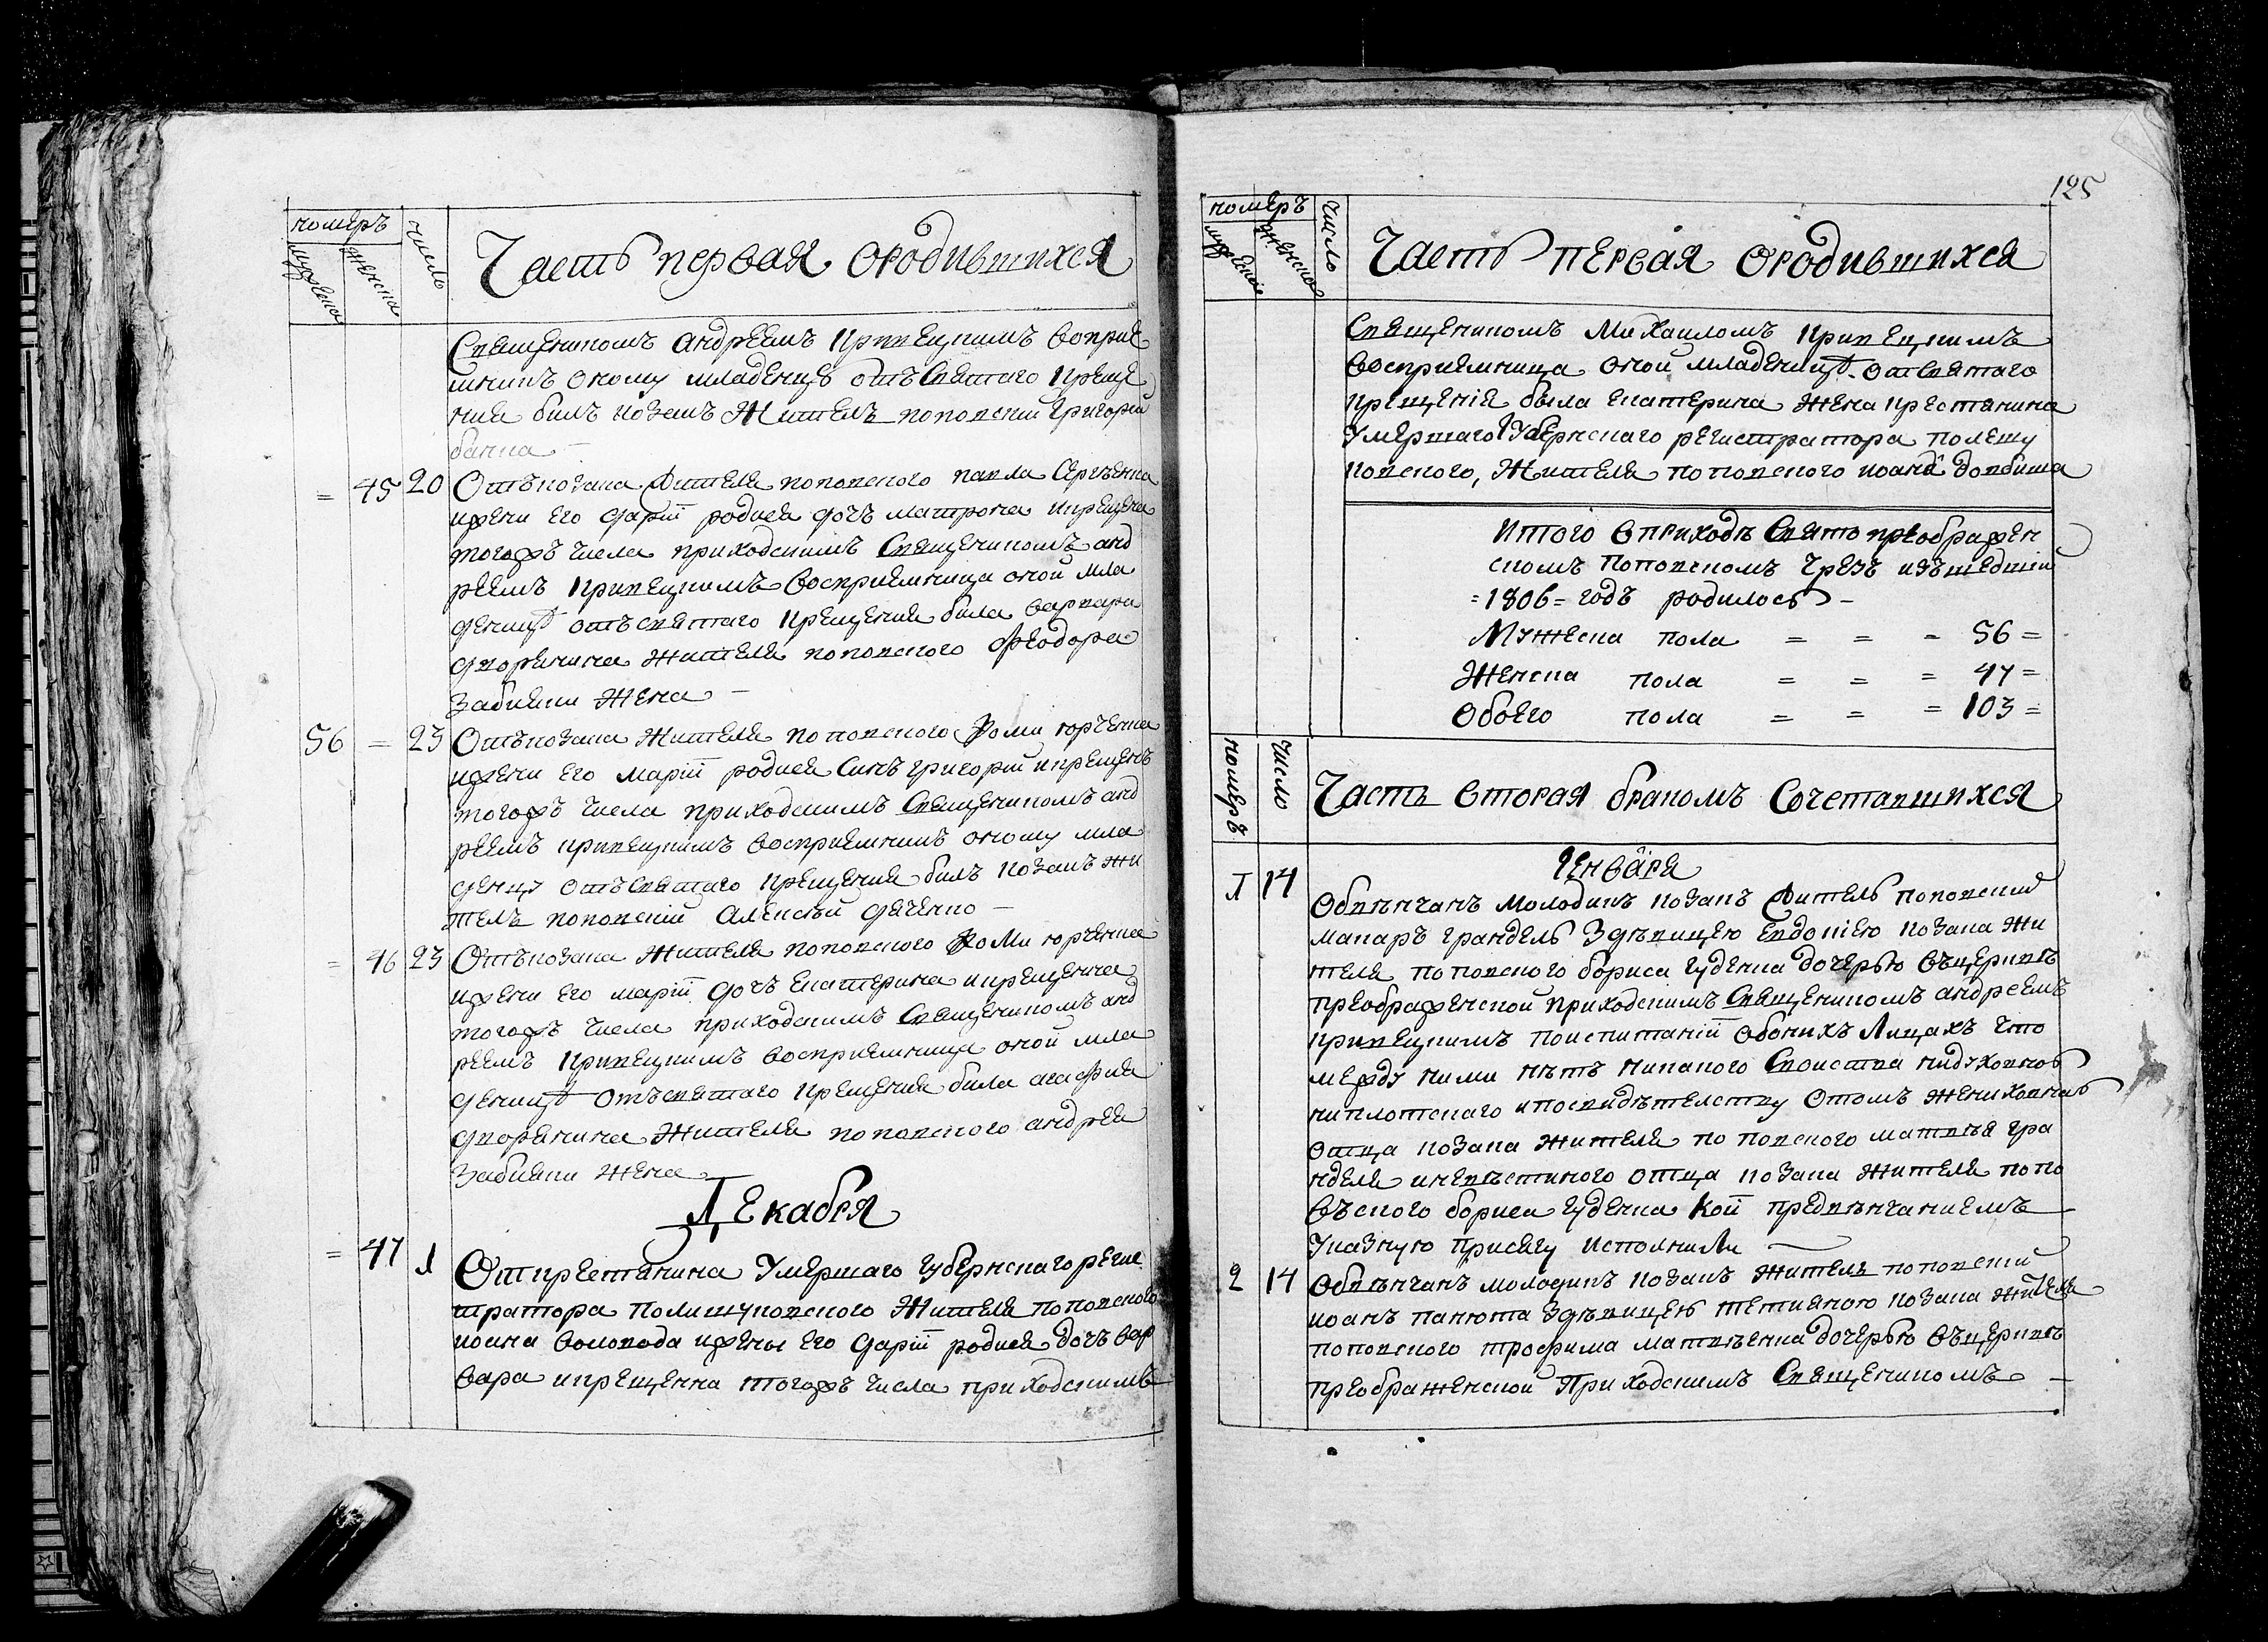 номеръ
мужеска
женска
число
Часть первая ородившихся
Священикомъ андреемъ кривецкимъ восприе
мникъ оному младенцу отъ Святаго креще
ния билъ козакъ Житель поповский григорий
45 20 Отъкозака Жителя поповского павла Сергѣенка
ижени его дарїи родися дочъ матрона икрещена
тогожъ числа приходскимъ Священикомъ анд
реемъ кривецкимъ восприемница оной мла
деницѣ отъ святаго крещения била варвара
дворянина жителя поповского Феодора
забияки жена
56 = 23 Отъкозака Жителя поповского Фоми юрченка
ижени его марїи родися Синъ григорий икрещенъ
тогожъ числа приходскимъ Священикомъ анд
реемъ кривецкимъ восприемникъ оному мла
денцу отъ Святаго крещения билъ козакъ жи
тель поповский алексѣй дяченко
= 46 23 Отъкозака Жителя поповского Фоми юрченка
ижени его марїи дочъ екатерина икрещенна
тогожъ числа приходскимъ Священикомъ анд
реемъ кривецкимъ восприемница оной мла
деницѣ отъ святаго крещения била агафия
дворянина Жителя поповского андрея
забияки жена
Декабря
= 47 1 Открестянина Умершаго губернскаго регис
тратора полишуковского Жителя поповского
иоана воловода ижены его дарїи родися дочъ вар
вара икрещенна тогожъ числа приходскимъ
125
номеръ
мужеска
женска
число
Часть первая ородившихся
Священикомъ Михаиломъ кривецкимъ
восприемница оной младеницѣ отсвятаго
крещения была екатерина жена крестянина
Умершаго Губернскаго регистратора полешу
ковского, Жителя поповского иоана довбиша
Итого вприходѣ Свято преображен
скомъ поповскомъ чрезъ изъшедший
= 1806 = годъ родилось
Мужеска пола = = = 56 =
Женска пола = = = 47 =
Обоего пола = = = 103 =
номеръ
число
Часть вторая бракомъ Сочетавшихся
Генваря
1 14 Обвѣнчанъ молодикъ козакъ Житель поповский
макаръ грандель здѣвицею евдокиею козака жи
теля поповского бориса гуденка дочерью въцерквѣ
преображенской приходскимъ Священикомъ андреемъ
кривецкимъ поиспитанїи обоихъ лицахъ что
между ними нѣтъ никакого Своиства нидуховнов
ниплотскаго ипосвидѣтелству отомъ жениховнаго
отца козака жителя поповского матвѣя гра
нделя иневѣстиного отца козака жителя попо
въского бориса гуденка кои предвѣнчаниемъ
Указную присягу исполнили
2 14 Обвѣнчанъ молодикъ козакъ Житель поповский
иоанъ панюта здѣвицею тетияною козака жителя
поповского трофима матвѣенка дочерью въцерквѣ
преображенской приходскимъ Священикомъ